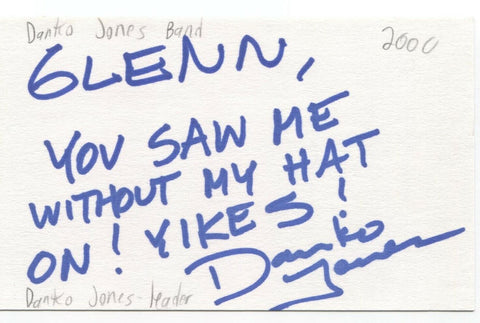 Danko Jones Band
2000
GLENN,
YOU SAW ME
WITHOUT MY HAT
ON! YIKES!
Danko
Jones
Danko Jones - leader